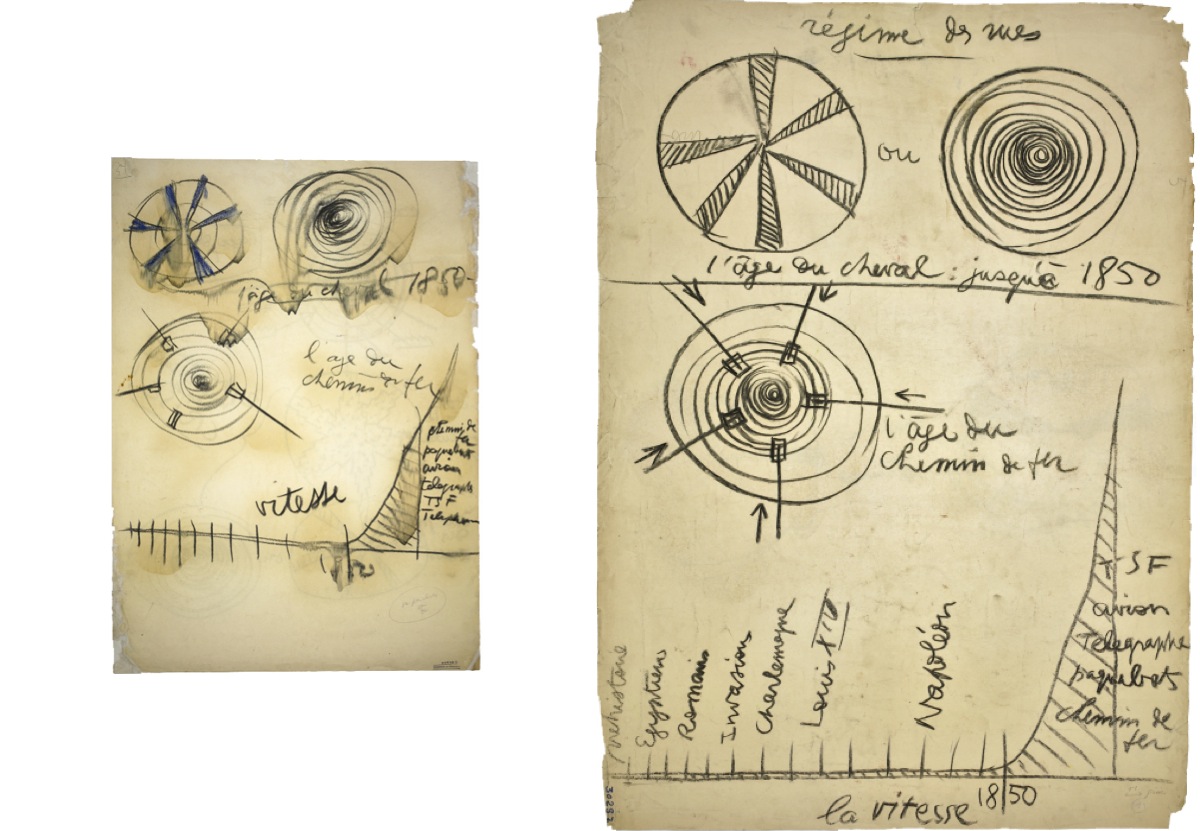 l'âge du cheval 1850
l'age du
chemin de fer
chemin de
fer
paquebots
avion
telegraphe
TSF
Telephone
vitesse
régime des rues
ou
l'âge du cheval : jusqu'à 1850
l'âge du
chemin de fer
Préhistoire
Egyptiens
Romains
Invasions
Charlemagne
Louis XIV
Napoléon
TSF
avion
Telegraphe
paquebots
chemin de
fer
1850
la vitesse